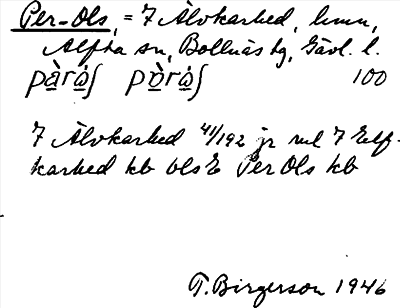 Per-Ols, = 7 Älvkarhed, hmn,
Alfta sn, Bollnäs tg, Gävl. l.
pàrὼʃ pòrὼʃ 100
7 Älvkarhed 41/192 jr ml 7 Elf-
karhed kb bls E Per Ols kb
T. Birgerson 1946